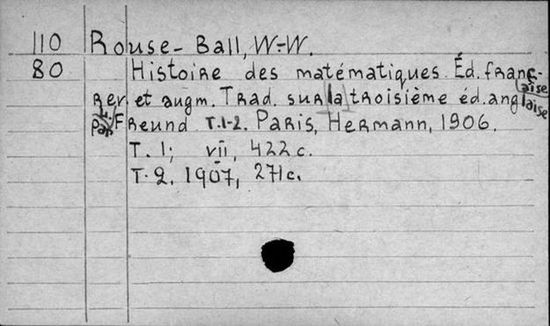 110 Rouse-Ball, W.-W.
80 Histoire des matématiques. Éd. franç-
aise
rev. et augm. Trad. sur la troisième éd. anglaise
par L. Freund. T.1-2. Paris, Hermann, 1906.
T. 1; VII, 422 c.
T. 2. 1907, 271 c.